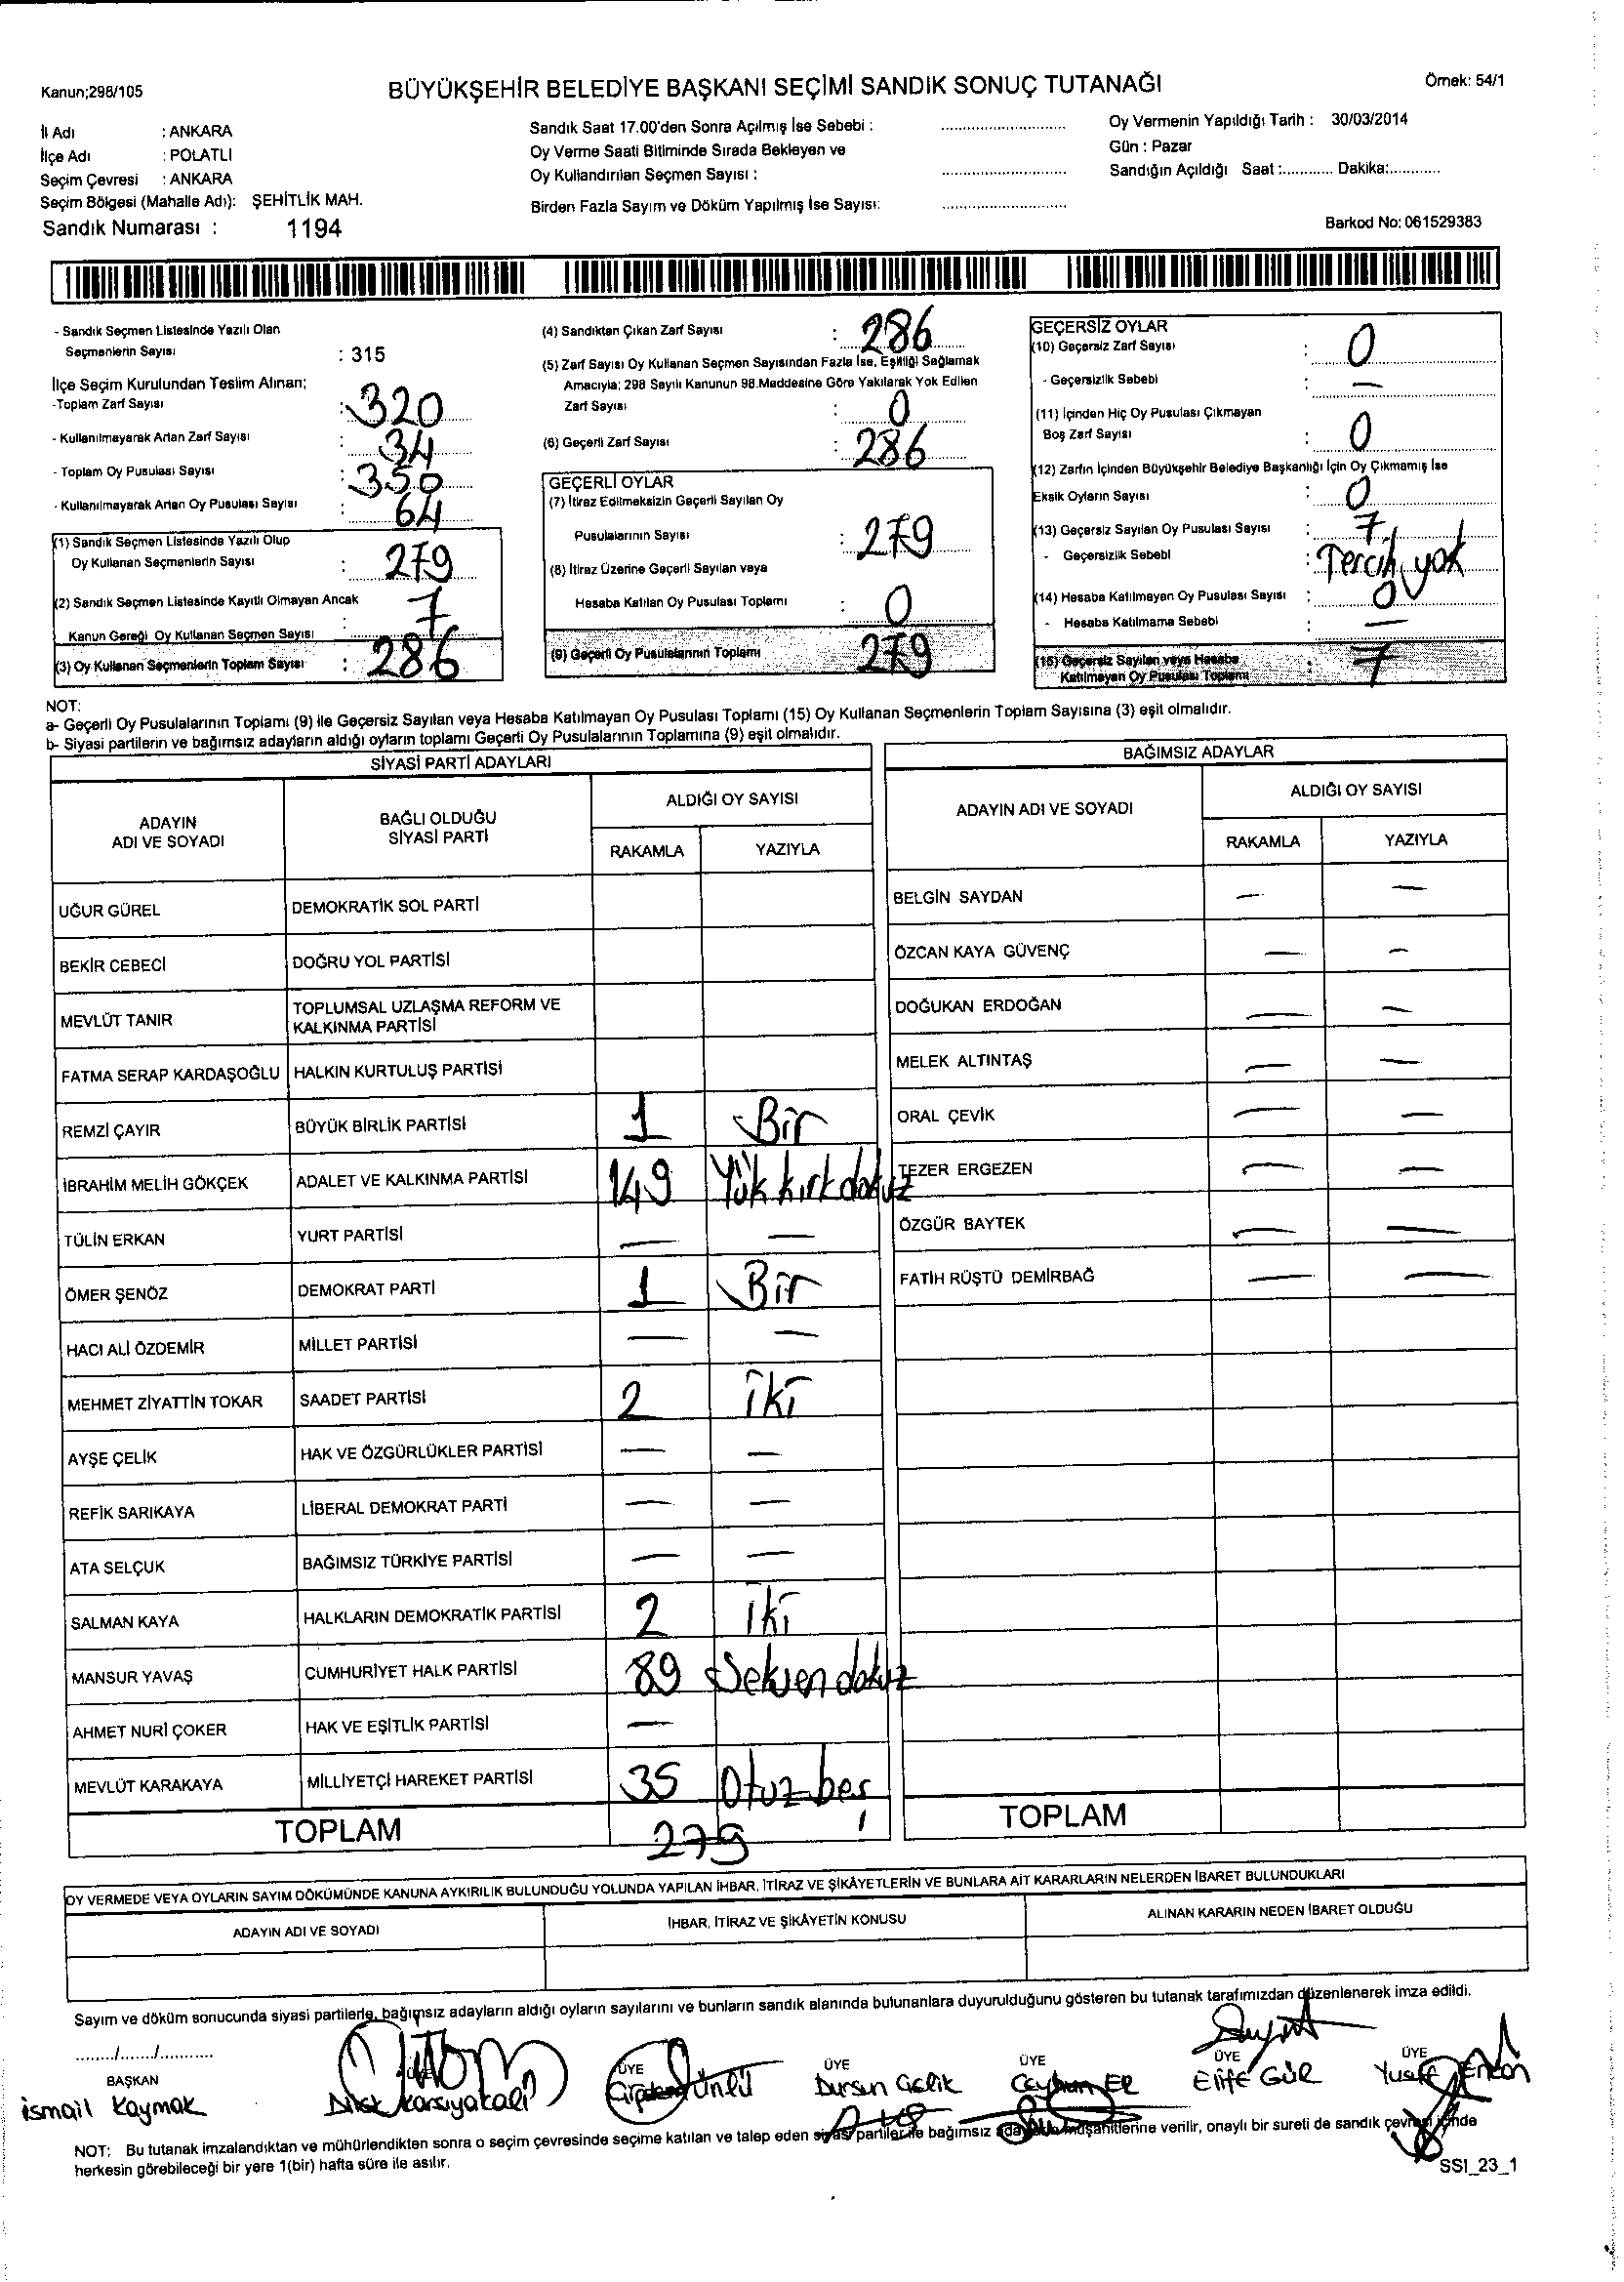 Kanun;298/105
BÜYÜKŞEHİR BELEDİYE BAŞKANI SEÇİMİ SANDIK SONUÇ TUTANAĞI
Örnek: 54/1
İl Adı : ANKARA
İlçe Adı : POLATLI
Seçim Çevresi : ANKARA
Seçim Bölgesi (Mahalle Adı): ŞEHİTLİK MAH.
Sandık Numarası : 1194
Sandık Saat 17.00'den Sonra Açılmış İse Sebebi : ............................
Oy Verme Saati Bitiminde Sırada Bekleyen ve
Oy Kullandırılan Seçmen Sayısı : ............................
Birden Fazla Sayım ve Döküm Yapılmış İse Sayısı: ............................
Oy Vermenin Yapıldığı Tarih : 30/03/2014
Gün : Pazar
Sandığın Açıldığı Saat :............ Dakika:............
Barkod No: 061529383
- Sandık Seçmen Listesinde Yazılı Olan
Seçmenlerin Sayısı : 315
İlçe Seçim Kurulundan Teslim Alınan;
-Toplam Zarf Sayısı : 320
- Kullanılmayarak Artan Zarf Sayısı : 34
- Toplam Oy Pusulası Sayısı : 350
- Kullanılmayarak Artan Oy Pusulası Sayısı : 64
(1) Sandık Seçmen Listesinde Yazılı Olup
Oy Kullanan Seçmenlerin Sayısı : 279
(2) Sandık Seçmen Listesinde Kayıtlı Olmayan Ancak
Kanun Gereği Oy Kullanan Seçmen Sayısı : 7
(3) Oy Kullanan Seçmenlerin Toplam Sayısı : 286
(4) Sandıktan Çıkan Zarf Sayısı : 286
(5) Zarf Sayısı Oy Kullanan Seçmen Sayısından Fazla İse, Eşitliği Sağlamak
Amacıyla; 298 Sayılı Kanunun 98.Maddesine Göre Yakılarak Yok Edilen
Zarf Sayısı : 0
(6) Geçerli Zarf Sayısı : 286
GEÇERLİ OYLAR
(7) İtiraz Edilmeksizin Geçerli Sayılan Oy
Pusulalarının Sayısı : 279
(8) İtiraz Üzerine Geçerli Sayılan veya
Hesaba Katılan Oy Pusulası Toplamı : 0
(9) Geçerli Oy Pusulalarının Toplamı 279
GEÇERSİZ OYLAR
(10) Geçersiz Zarf Sayısı : 0
- Geçersizlik Sebebi : —
(11) İçinden Hiç Oy Pusulası Çıkmayan
Boş Zarf Sayısı : 0
(12) Zarfın İçinden Büyükşehir Belediye Başkanlığı İçin Oy Çıkmamış İse
Eksik Oyların Sayısı : 0
(13) Geçersiz Sayılan Oy Pusulası Sayısı : 7
- Geçersizlik Sebebi : Tercih yok
(14) Hesaba Katılmayan Oy Pusulası Sayısı : 0
- Hesaba Katılmama Sebebi : —
(15) Geçersiz Sayılan veya Hesaba
Katılmayan Oy Pusulası Toplamı : 7
NOT:
a- Geçerli Oy Pusulalarının Toplamı (9) ile Geçersiz Sayılan veya Hesaba Katılmayan Oy Pusulası Toplamı (15) Oy Kullanan Seçmenlerin Toplam Sayısına (3) eşit olmalıdır.
b- Siyasi partilerin ve bağımsız adayların aldığı oyların toplamı Geçerli Oy Pusulalarının Toplamına (9) eşit olmalıdır.
SİYASİ PARTİ ADAYLARI
ADAYIN ADI VE SOYADI
BAĞLI OLDUĞU SİYASİ PARTİ
ALDIĞI OY SAYISI
RAKAMLA YAZIYLA
UĞUR GÜREL DEMOKRATİK SOL PARTİ
BEKİR CEBECİ DOĞRU YOL PARTİSİ
MEVLÜT TANIR TOPLUMSAL UZLAŞMA REFORM VE KALKINMA PARTİSİ
FATMA SERAP KARDAŞOĞLU HALKIN KURTULUŞ PARTİSİ
REMZİ ÇAYIR BÜYÜK BİRLİK PARTİSİ 1 Bir
İBRAHİM MELİH GÖKÇEK ADALET VE KALKINMA PARTİSİ 149 Yük kırk dokuz
TÜLİN ERKAN YURT PARTİSİ — —
ÖMER ŞENÖZ DEMOKRAT PARTİ 1 Bir
HACI ALİ ÖZDEMİR MİLLET PARTİSİ — —
MEHMET ZİYATTİN TOKAR SAADET PARTİSİ 2 iki
AYŞE ÇELİK HAK VE ÖZGÜRLÜKLER PARTİSİ — —
REFİK SARIKAYA LİBERAL DEMOKRAT PARTİ — —
ATA SELÇUK BAĞIMSIZ TÜRKİYE PARTİSİ — —
SALMAN KAYA HALKLARIN DEMOKRATİK PARTİSİ 2 iki
MANSUR YAVAŞ CUMHURİYET HALK PARTİSİ 89 Seksen dokuz
AHMET NURİ ÇOKER HAK VE EŞİTLİK PARTİSİ —
MEVLÜT KARAKAYA MİLLİYETÇİ HAREKET PARTİSİ 35 Otuz beş
TOPLAM 279
BAĞIMSIZ ADAYLAR
ADAYIN ADI VE SOYADI
ALDIĞI OY SAYISI
RAKAMLA YAZIYLA
BELGİN SAYDAN — —
ÖZCAN KAYA GÜVENÇ — —
DOĞUKAN ERDOĞAN — —
MELEK ALTINTAŞ — —
ORAL ÇEVİK — —
TEZER ERGEZEN — —
ÖZGÜR BAYTEK — —
FATİH RÜŞTÜ DEMİRBAĞ — —
TOPLAM
OY VERMEDE VEYA OYLARIN SAYIM DÖKÜMÜNDE KANUNA AYKIRILIK BULUNDUĞU YOLUNDA YAPILAN İHBAR, İTİRAZ VE ŞİKÂYETLERİN VE BUNLARA AİT KARARLARIN NELERDEN İBARET BULUNDUKLARI
ADAYIN ADI VE SOYADI
İHBAR, İTİRAZ VE ŞİKÂYETİN KONUSU
ALINAN KARARIN NEDEN İBARET OLDUĞU
Sayım ve döküm sonucunda siyasi partilerle, bağımsız adayların aldığı oyların sayılarını ve bunların sandık alanında bulunanlara duyurulduğunu gösteren bu tutanak tarafımızdan düzenlenerek imza edildi.
......../......./...........
BAŞKAN ÜYE ÜYE ÜYE ÜYE ÜYE
ismail Kaymak
Ünlü
Dursun Çelik
Ceyhun ER
Elife GÜL
Yusuf
NOT: Bu tutanak imzalandıktan ve mühürlendikten sonra o seçim çevresinde seçime katılan ve talep eden siyasi partiler ile bağımsız aday müşahitlerine verilir, onaylı bir sureti de sandık çevresi içinde
herkesin görebileceği bir yere 1(bir) hafta süre ile asılır.
SSI_23_1